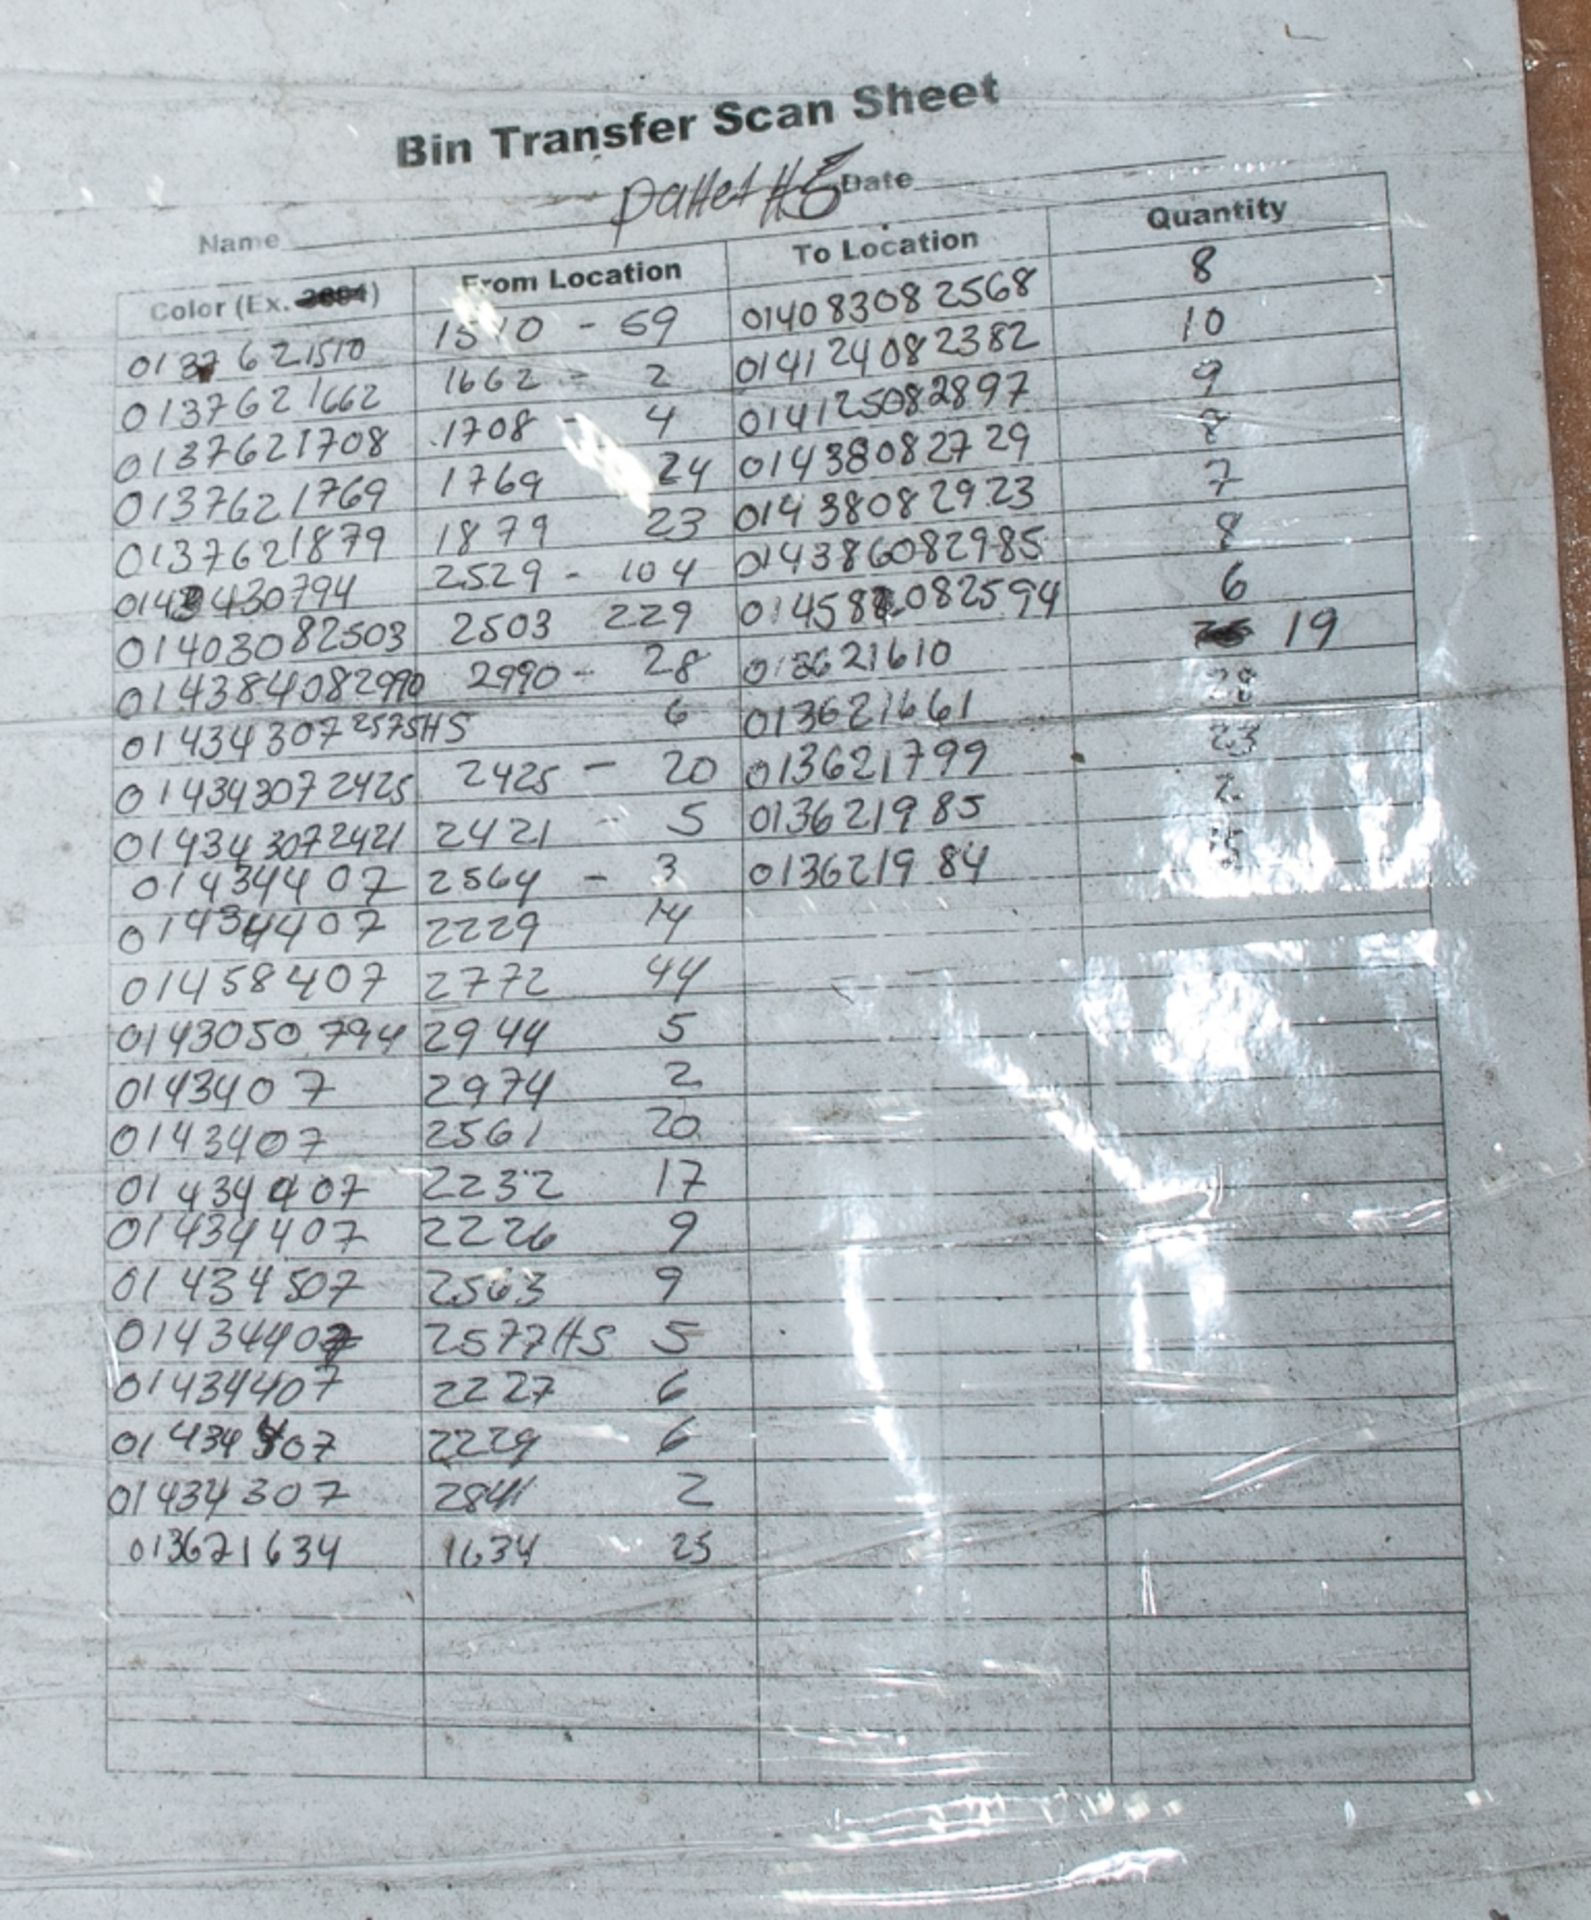 Bin Transfer Scan Sheet
Name pallet #6 Date
Color (Ex. ) From Location To Location Quantity
0137621510 1510 - 59 014083082568 8
0137621662 1662 - 2 014124082382 10
0137621708 1708 - 4 014125082897 9
0137621769 1769 24 01438082729 8
0137621879 1879 23 01438082923 7
0143430794 2529 - 104 014386082985 8
01403082503 2503 229 014582082594 6
014384082990 2990 - 28 013621610 19
014343072575HS 6 013621661 28
014343072425 2425 - 20 013621799 23
014343072421 2421 - 5 013621985 2
014344 07 2564 - 3 013621984
01434407 2229 14
01458407 2772 44
0143050794 2944 5
0143407 2974 2
0143407 2561 20
01434407 2232 17
01434407 2226 9
01434507 2563 9
01434407 2577HS 5
01434407 2227 6
01434407 2229 6
01434307 2841 2
013621634 1634 25